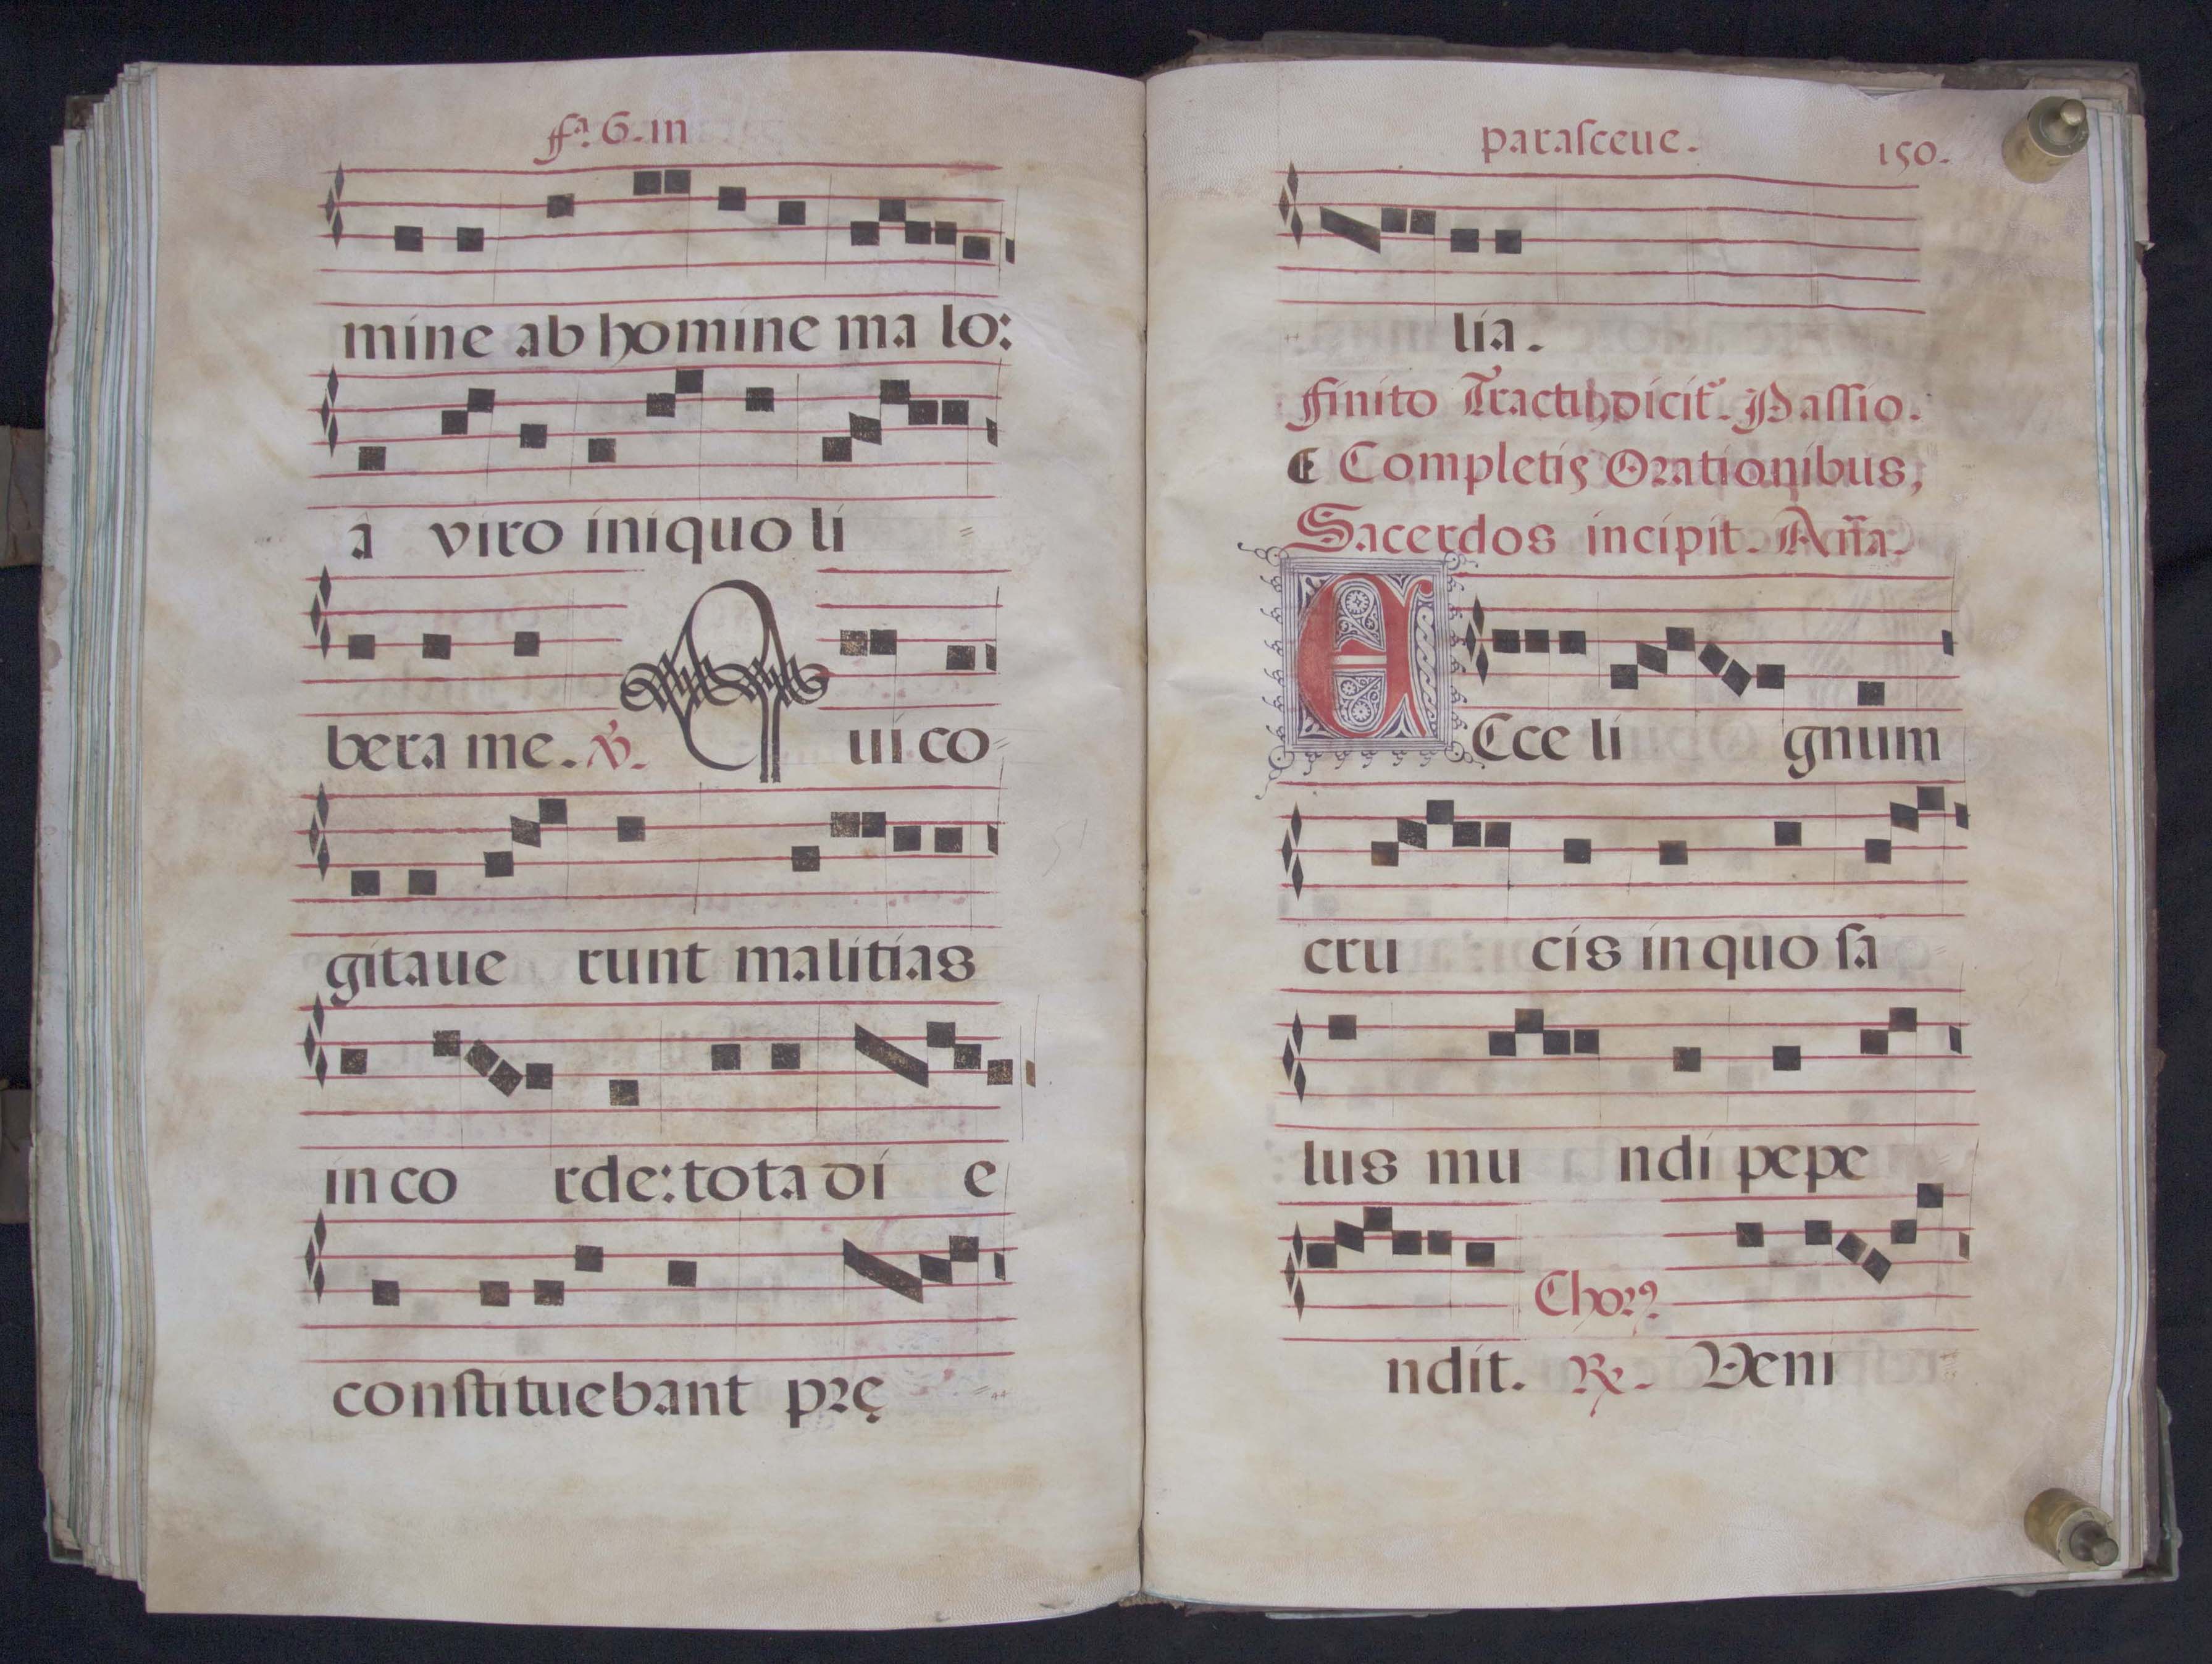 fª. 6. in
mine ab homine ma lo:
â viro iniquo li
bera me. ℣. Qui co
gitaue runt malitias
in co rde: tota di e
constituebant prę
parasceue. 150.
lia.
finito Tractu, dicit᷑. Passio.
E Completis Orationibus,
Sacerdos incipit. Añа.
ECce li gnum
cru cis in quo sa
lus mu ndi pepe
Chorꝰ
ndit. ℟. Veni